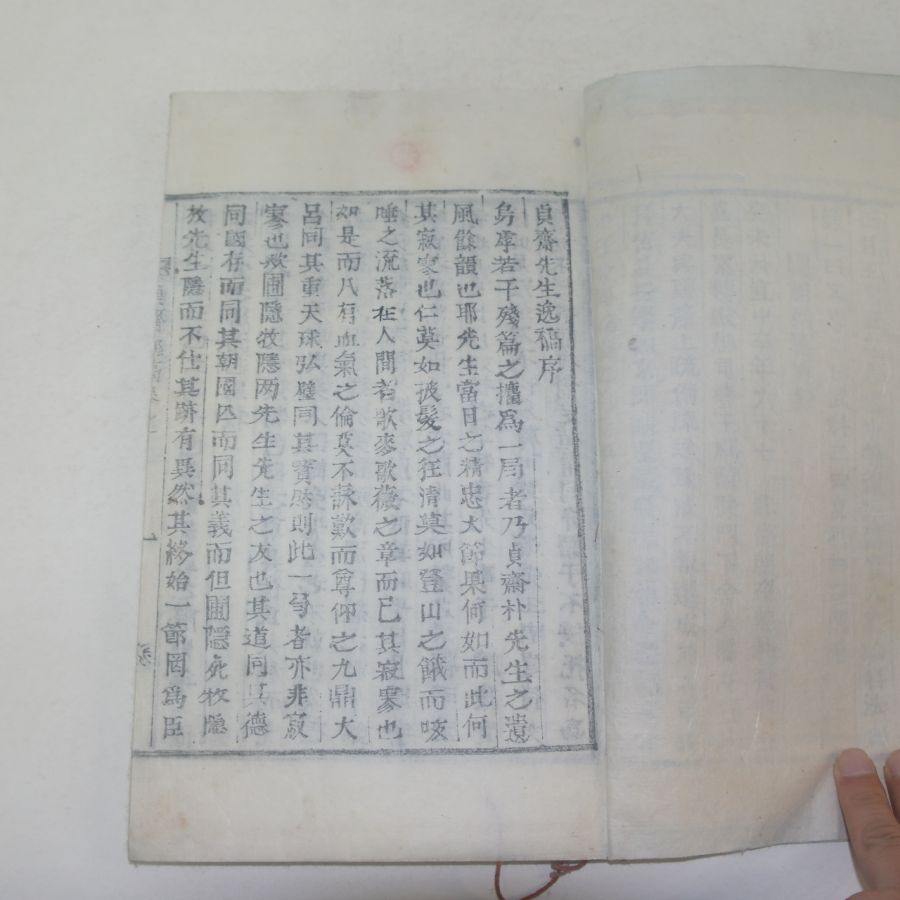 貞齋先生逸稿序
身虖若干殘篇之攟爲一局者乃貞齋朴先生之遺
風餘韻也耶先生當日之精忠大節果何如而此何
其寂寥也仁莫如被髮之狂清莫如登山之餓而咳
唾之流落在人間者歌麥歌薇之章而已其寂寥也
如是而凡有血氣之倫莫不詠歎而尊仰之九鼎大
呂同其重天球弘璧同其寶然則此一局者亦非寂
寥也歟圃隱牧隱两先生先生之友也其道同其德
同國存而同其朝國亡而同其義而但圃隱死牧隱
放先生隱而不仕其跡有異然其終始一節罔爲臣